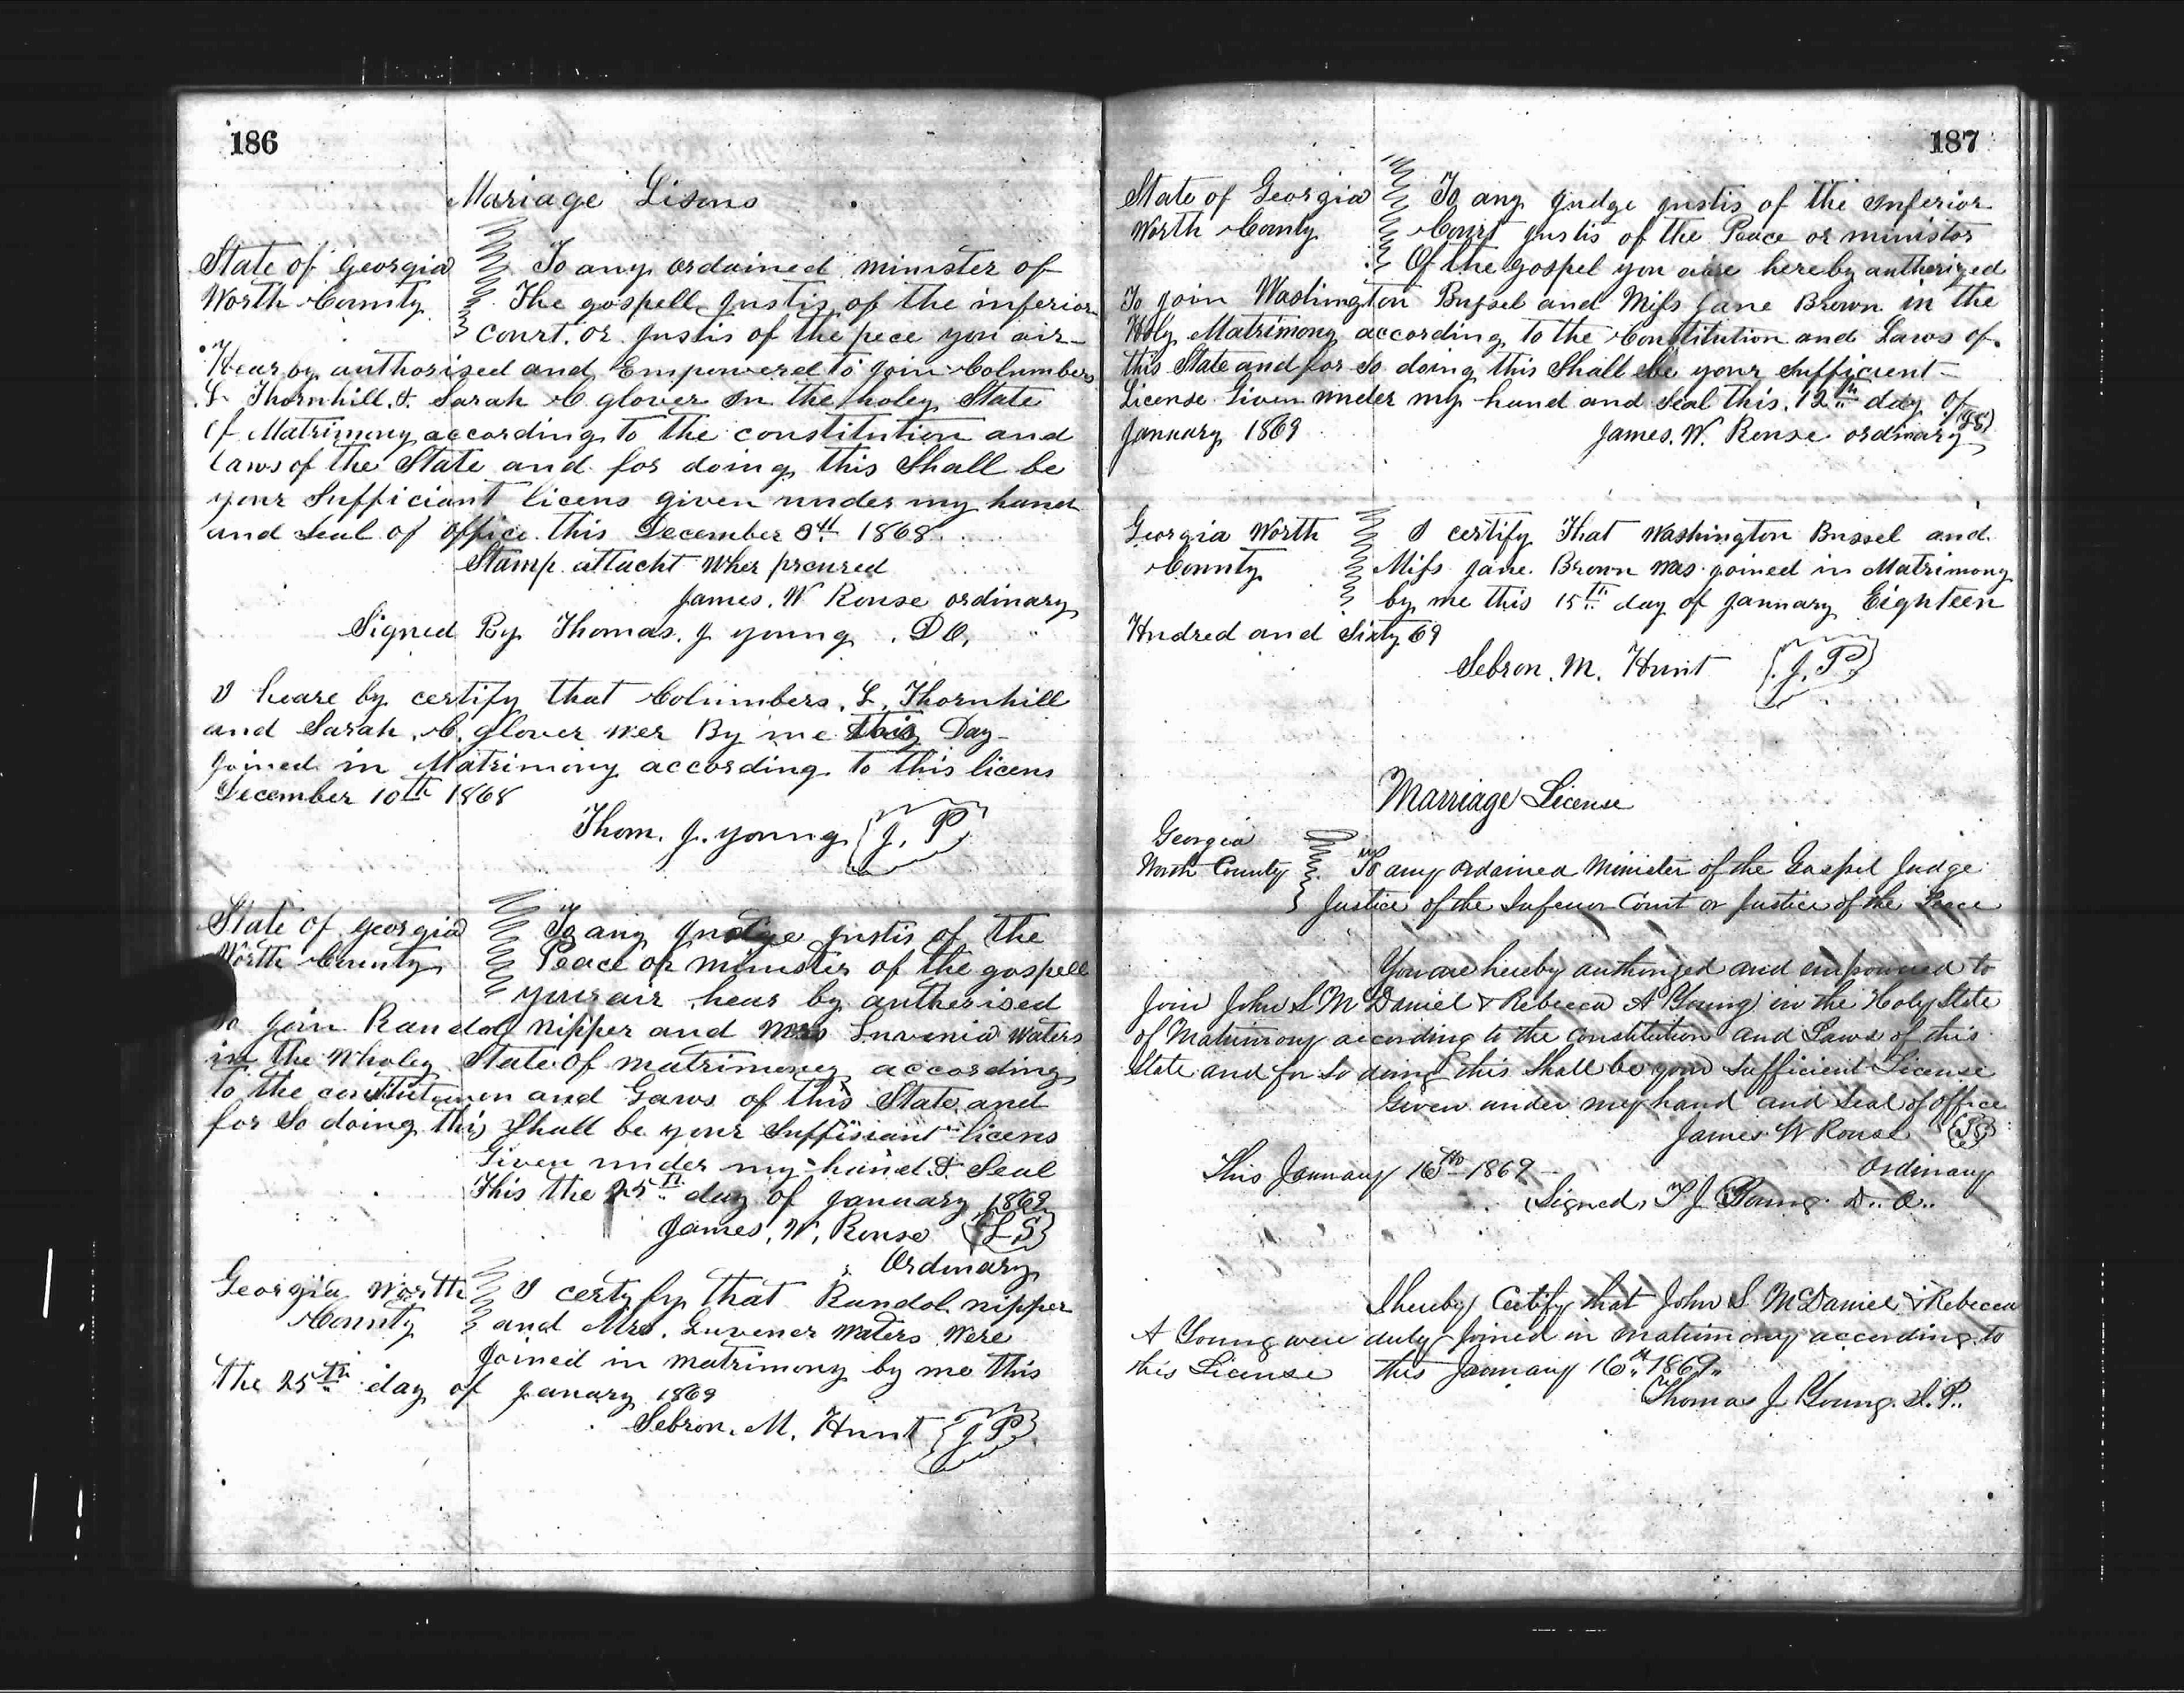 186
Mariage Lisens
State of Georgia To any ordained minister of
Worth County The gospell Justis of the inferior
court. or Justis of the pece you air
Hear by authorised and Empowered to join Columbers
L. Thornhill & Sarah C glover In the holey State
of Matrimony according to the constitution and
Laws of the State and for doing this Shall be
your Sufficiant licens given under my hand
and Seal of office this December 1868
Stamp attacht Wher prcured
James. W Rouse ordinary
Signed By Thomas. J young . D O,
I heare by certify that Columbers. L. Thornhill
and Sarah. C. glover wer By me this Day
Joined in Matrimony according to this licens
December 10th 1868
Thom. J. young J. P
State of georgia To any Judge Justis of the
Worth County Peace or minister of the gospell
your air hear by autherised
To Join Randol nipper and Mrs Luvenia Waters
in the Wholey State Of matrimoney according
to the and Laws of this State and
for So doing this Shall be your Suffisiant licens
Given under my hand & Seal
This the 25th day of January 1869
James. W. Rouse L S
Ordinary
Georgia Worth I certyfy that Randol nipper
County and Mrs. Luvener Waters Were
Joined in matrimony by me this
the 25th day of January 1869
Sebron. M. Hunt J P
187
State of Georgia To any Judge Justis of the Inferior
Worth County Court Justis of the Peace or minister
Of the Gospel you are hereby autherized
To join Washington Bussel and Miss Jane Brown in the
Holy Matrimony according to the Constitution and Laws of
this State and for So doing this Shall be your Sufficient
License Given under my hand and Seal this 12th day of
January 1869 James. W. Rouse ordinary LS
Georgia Worth I certify That Washington Bussel and
County Miss Jane Brown was joined in Matrimony
by me this 15th day of January Eighteen
Hndred and Sixty 69
Sebron. M. Hunt J. P
Marriage License
Georgia
Worth County To any Ordained Minister of the Gospel Judge
Justice of the Inferior Court or Justice of the Peace
You are hereby authorized and empowered to
Join John S McDaniel & Rebecca A Young in the Holy State
of Matrimony according to the Constitution and Laws of this
State and for So doing this Shall be your Sufficient License
Given under my hand and Seal of office
James W Rouse LS
This January 16th 1869 Ordinary
Signed, T J Young D. O.
I hereby Certify that John S McDaniel & Rebecca
A Young were duly Joined in matrimony according to
this License this January 16th 1869
Thomas J Young. J. P.